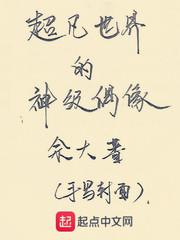 超凡世界
的
神级偶像
佘大葺
(手写封面)
起
起点中文网